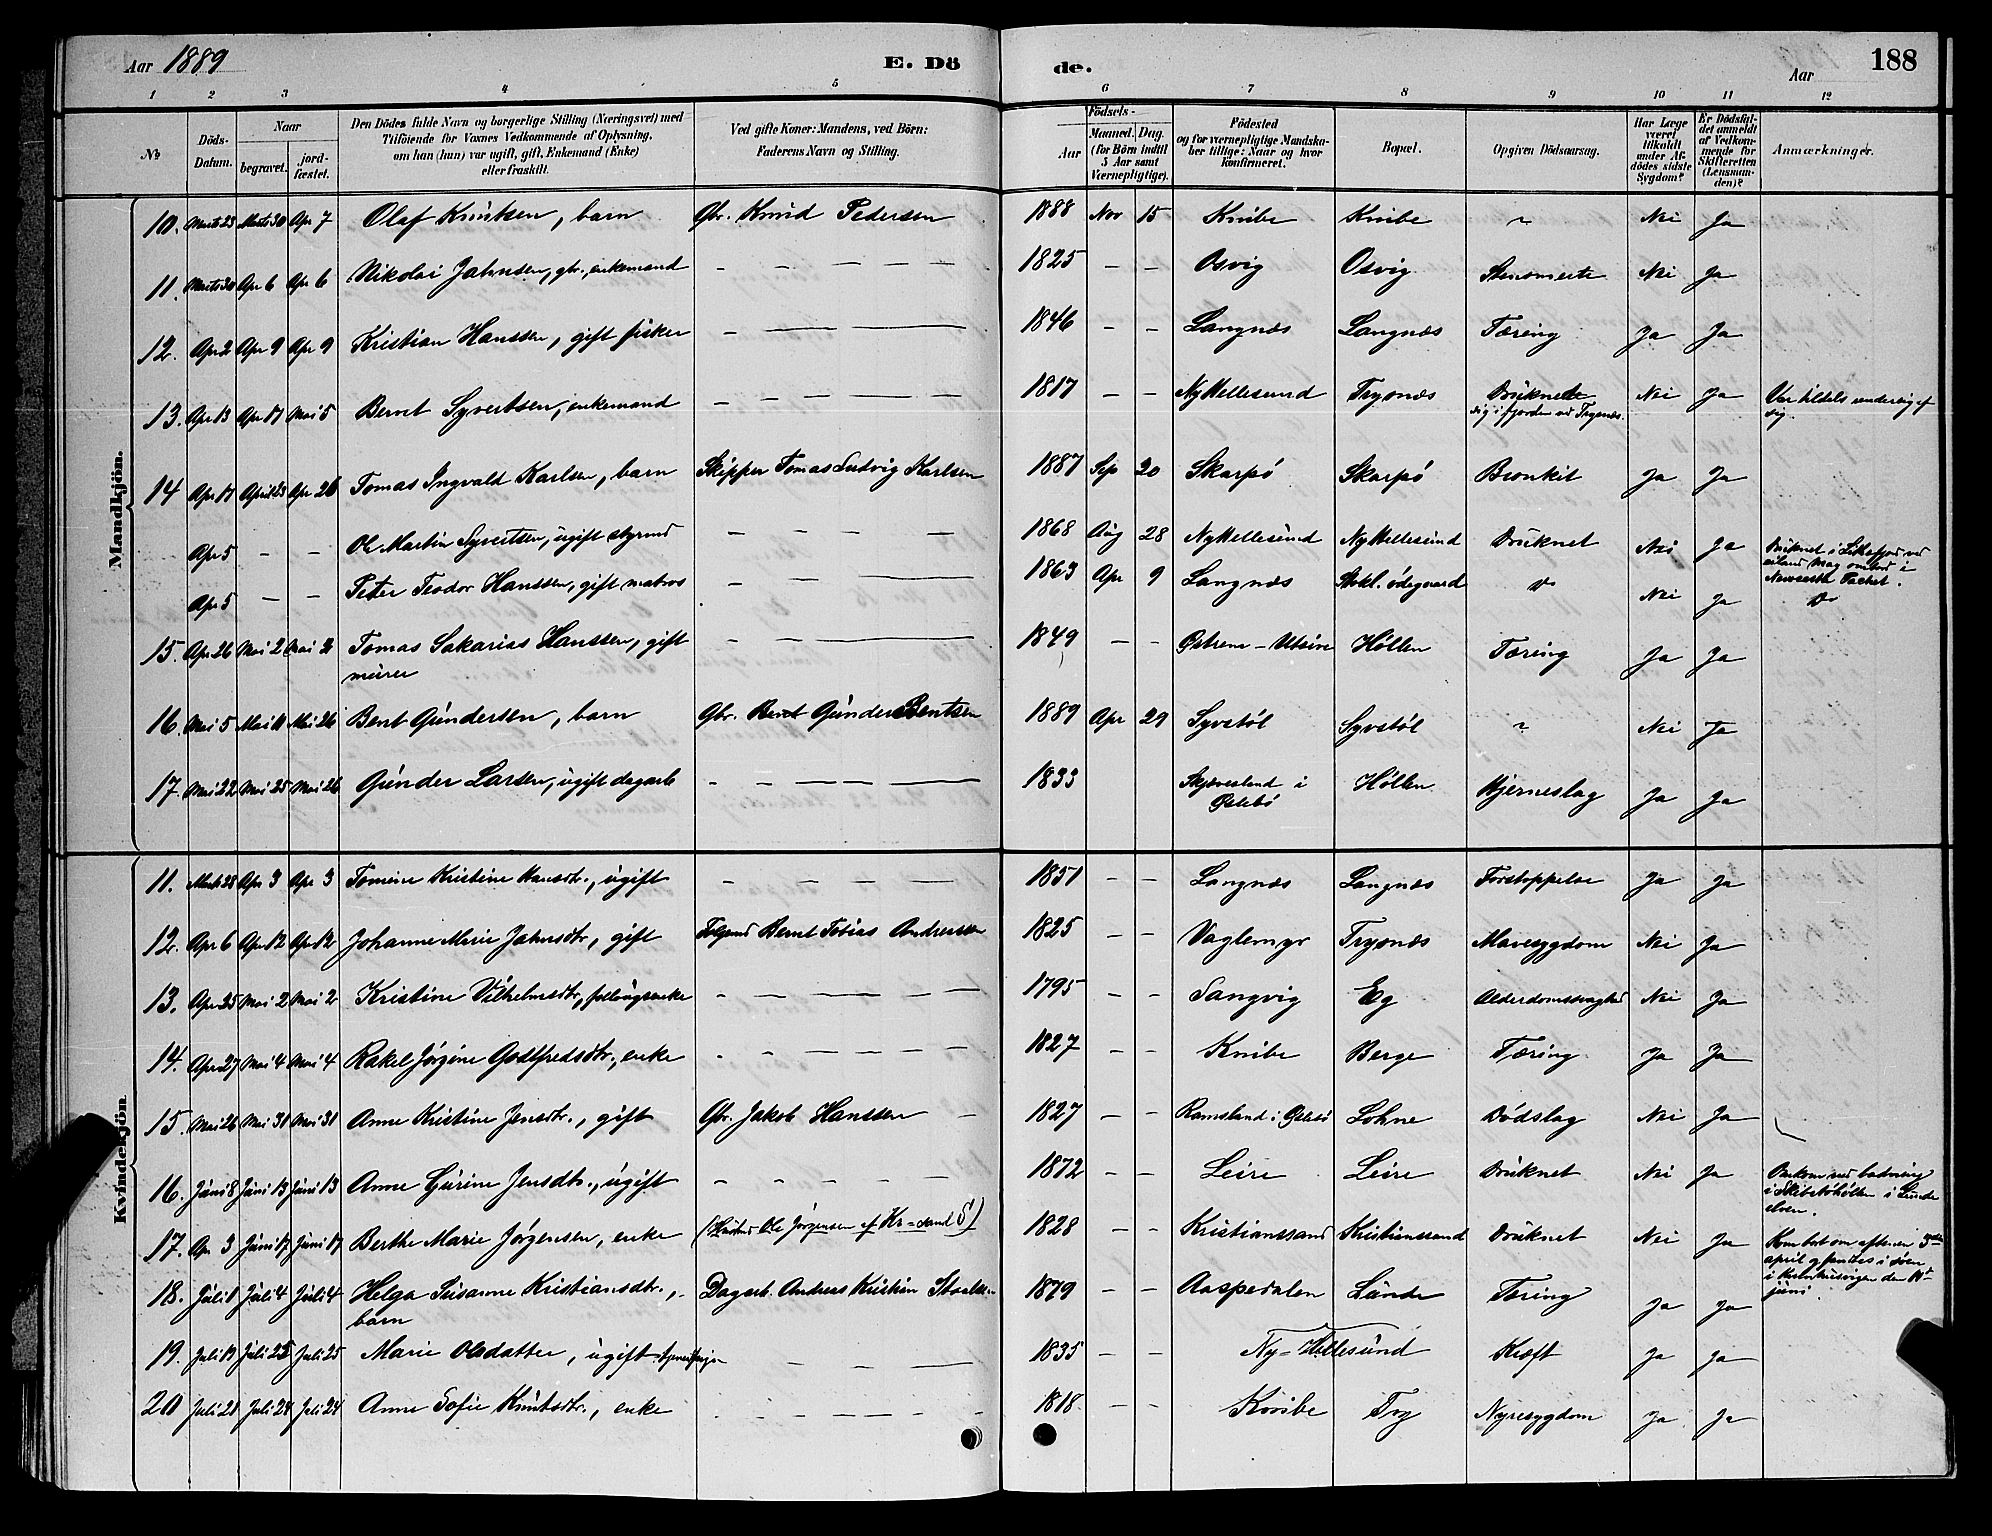 Aar 1889 E. Dö de. Aar 188
1 2 3 4 5 6 7 8 9 10 11 12
No
Döds-Datum.
Naar
begravet.
jord-fæstet.
Den Dödes fulde Navn og borgerlige Stilling (Næringsvei) med
Tilföiende for Voxnes Vedkommende af Oplysning,
om han (hun) var ugift, gift, Enkemand (Enke)
eller fraskilt.
Ved gifte Koner: Mandens, ved Börn:
Faderens Navn og Stilling.
Födsels-
Aar
Maaned. Dag.
(for Börn indtil
5 Aar samt
Værnepligtige).
Födested
og for værnepligtige Mandska-
ber tillige: Naar og hvor
Konfirmeret.
Bopæl.
Opgiven Dödsaarsag.
Har Læge
været
tilkaldt
under Af-
dödes sidste
Sygdom?
Er Dödsfal-
det anmeldt
af Vedkom-
mende for
Skifteretten
(Lensman-
den)?
Anmærkninger.
Mandkjön.
10. Marts 23 Marts 30 Apr 7 Olaf Knutsen, barn Gbr. Knud Pedersen 1888 Nov 15 Knibe Knibe Nei Ja
11. Marts 30 Apr 6 Apr 6 Nikolai Jahnsen, gbr., enkemand – – – 1825 – – Osvig Osvig Nei Ja
12. Apr 2 Apr 9 Apr 9 Kristian Hanssen, gift fisker – – – 1846 – – Langnæs Langnæs Tæring Ja Ja
13. Apr 13 Apr 17 Mai 5 Bernt Syvertsen, enkemand – – – 1817 – – Ny Hellesund Trysnæs Druknede Nei Ja Var tildels
sig i fjorden ved Trysnæs. sig.
14 Apr 17 April 23 Apr 26 Tomas Ingvald Karlsen, barn Skipper Tomas Ludvig Karlsen 1887 Sep 20 Skarpö Skarpö Bronkit Ja Ja
Apr 5 – – Ole Martin Syvertsen, ugift styrmd – – – 1868 Aug 28 Ny Hellesund Ny Hellesund Druknet Nei Ja Druknet i
Apr 5 – – Peter Teodor Hanssen, gift matros – – – 1863 Apr 9 Langnæs ødegaard Do Nei Ja Do
15. Apr 26 Mai 2 Mai 2 Tomas Sakarias Hanssen, gift – – – 1849 – – Østrem – Høllen Tæring Ja Ja
murer
16. Mai 5 Mai 11 Mai 26 Bent Gundersen, barn Gbr. Gunder Bentsen 1889 Apr 29 Syvstöl Syvstöl Nei Ja
17. Mai 22 Mai 25 Mai 26 Gunder Larsen, ugift dagarb – – – 1833 i Høllen Hjerneslag Ja Ja
Øslebö
Kvindekjön.
11. Marts 28 Apr 3 Apr 3 Tomine Kristine Hansdtr., ugift – – – 1851 – – Langnæs Langnæs Forstoppelse Ja Ja
12. Apr 6 Apr 12 Apr 12 Johanne Marie Jahnsdtr, gift Bernt Tobias Andreassen 1825 – – Vaglemyr Trysnæs Mavesygdom Nei Ja
13. Apr 25 Mai 2 Mai 2 Kristine Vilhelmsdtr, – – – 1795 – – Sangvig Eg Alderdomssvaghed Nei Ja
14. Apr 27 Mai 4 Mai 4 Rakel Jørgine Godtfredsdtr., enke – – – 1827 – – Knibe Berge Tæring Ja Ja
15. Mai 26 Mai 31 Mai 31 Anne Kristine Jensdtr., gift Gbr. Jakob Hanssen – 1827 – – Ramsland i Øslebö Lohne Dödslag Nei Ja
16. Juni 8 Juni 13 Juni 13 Anne Gurine Jensdtr., ugift – – – 1872 – – Leire Leire Druknet Nei Ja Omkom ved badning
i i Lunde
elven.
17. Apr 3 Juni 17 Juni 17 Berthe Marie Jørgensen, enke Ole Jørgensen af Kr=sand S) 1828 – – Kristianssand Kristianssand Druknet Nei Ja Kom bort om aftenen 3die
april og fandtes i søen
i den 11te
juni
18. Juli 1 Juli 4 Juli 4 Helga Susanne Kristiansdtr., Dagarb. Andreas Kristian 1879 – – Aaspedalen Lunde Tæring Ja Ja
barn
19. Juli 19 Juli 25 Juli 25 Marie Olsdatter, ugift – – – 1835 – – Ny=Hellesund Kræft Ja Ja
20 Juli 21 Juli 24 Juli 24 Anne Sofie Knutsdtr., enke – – – 1818 – – Knibe Try Nyresygdom Ja Ja